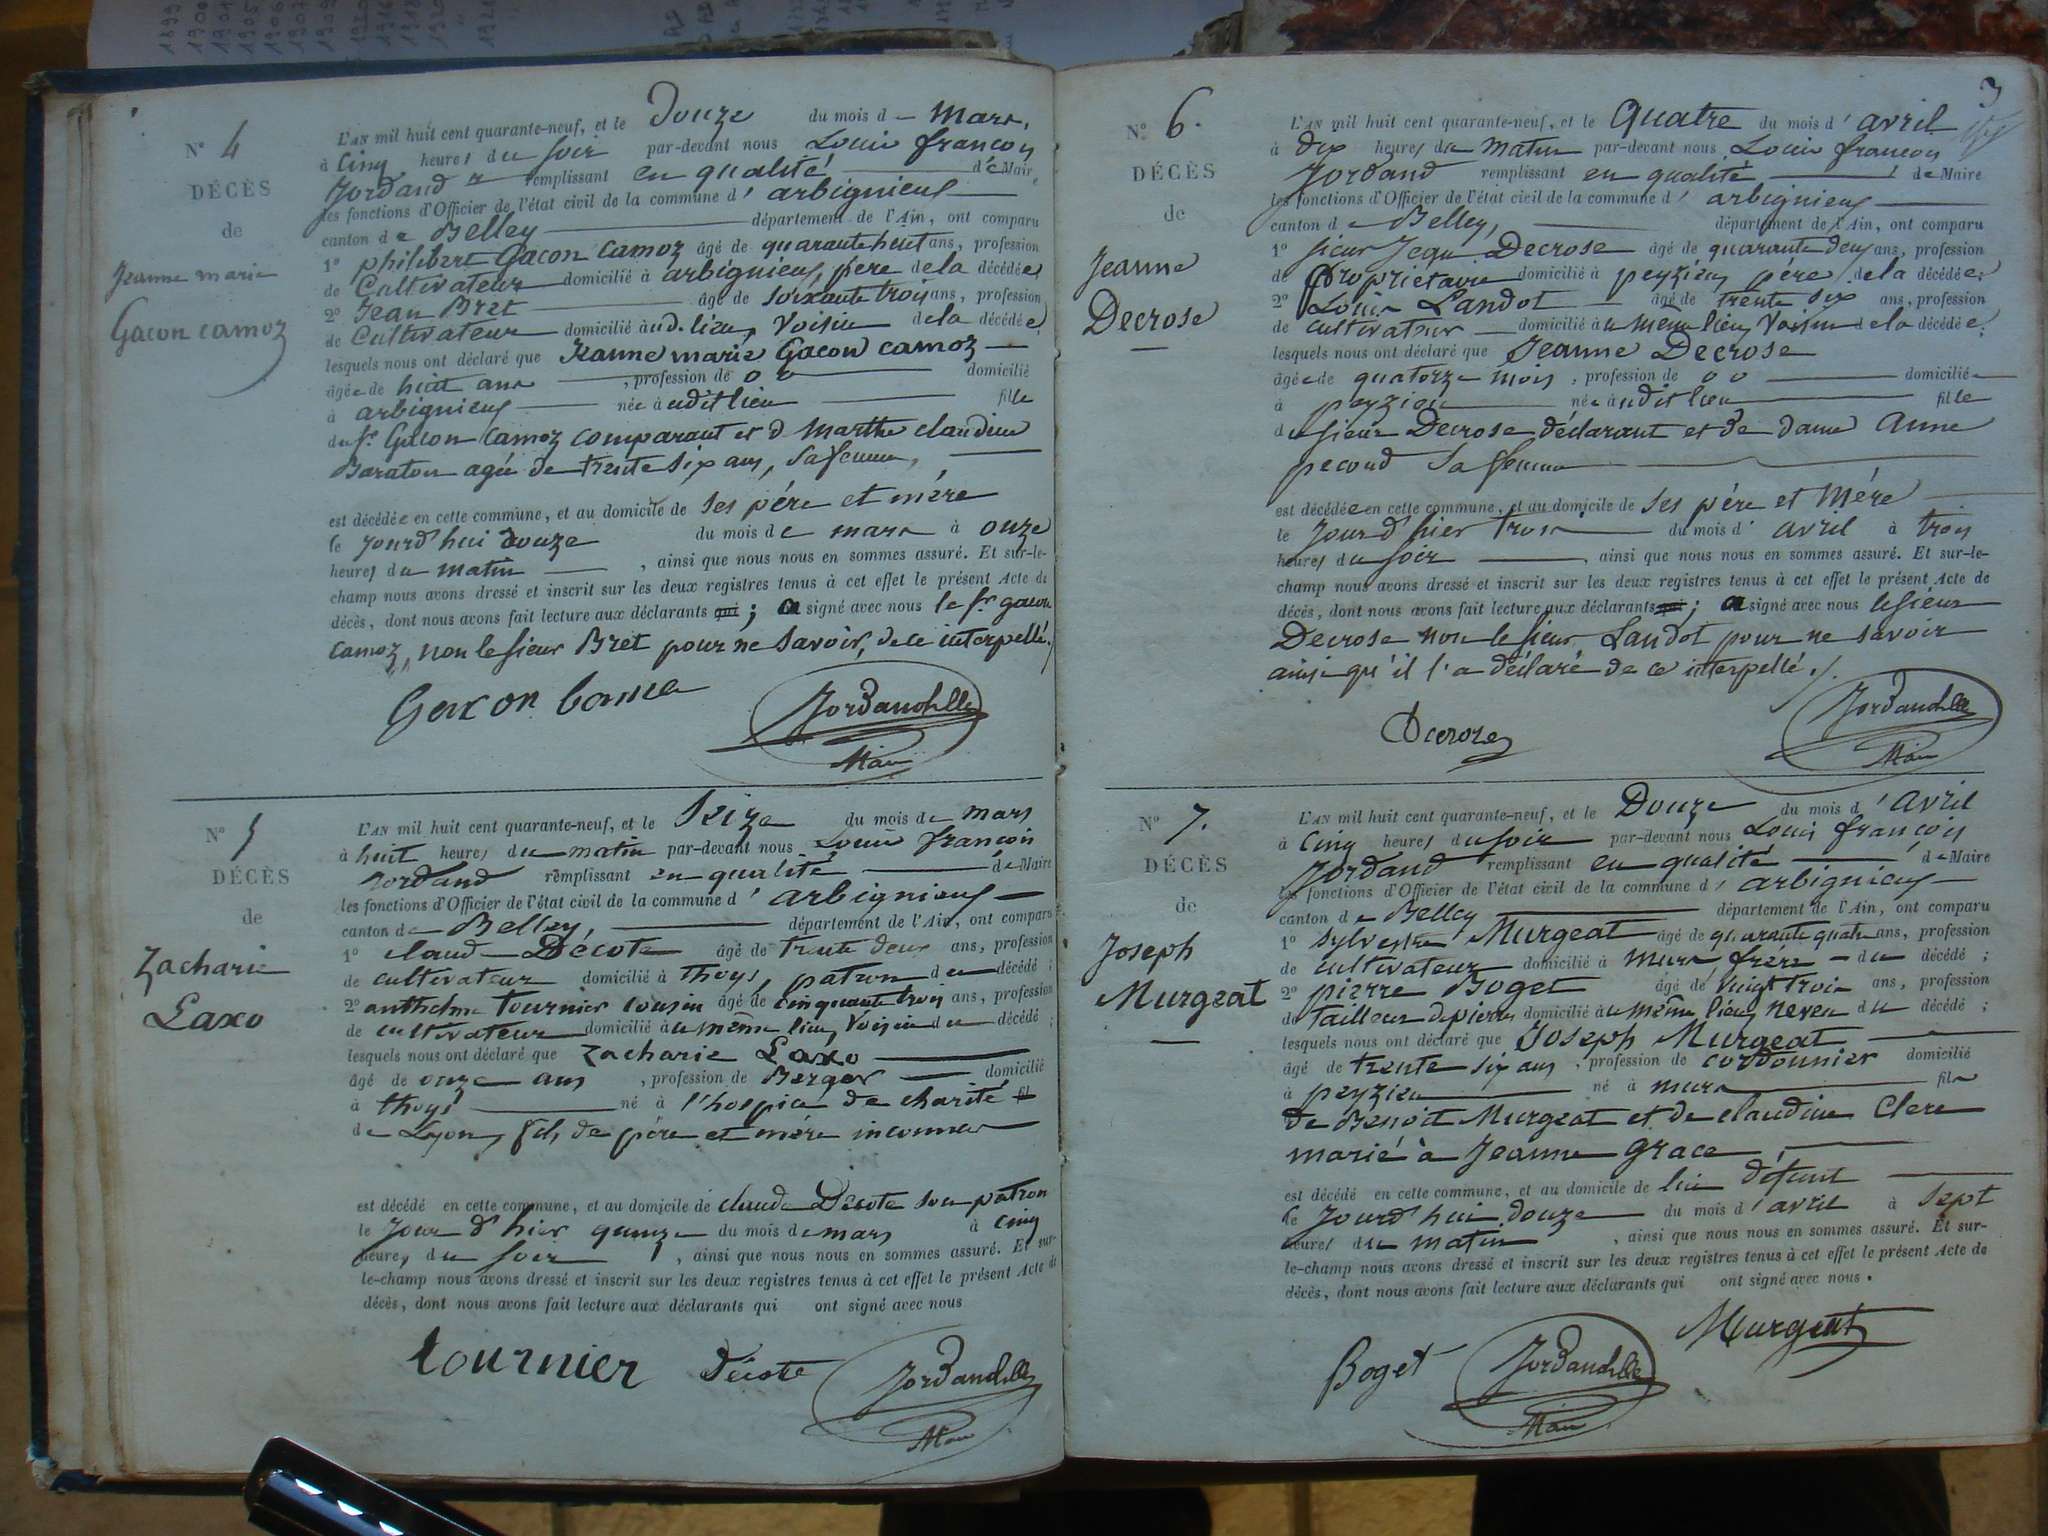 N° 4
DÉCÈS
de
Jeanne marie
Gacon camoz
L'AN mil huit cent quarante-neuf, et le Douze du mois de Mars,
à Cinq heures du soir par-devant nous Louis françois
Jordand remplissant en qualité de Maire
les fonctions d'Officier de l'état civil de la commune d'arbignieux
canton de Belley département de l'Ain, ont comparu
1° philibert Gacon Camoz âgé de quarante huit ans, profession
de Cultivateur domicilié à arbignieux, père de la décédée,
2° Jean Bret âgé de soixante trois ans, profession
de Cultivateur domicilié aud. lieu, Voisin de la décédée,
lesquels nous ont déclaré que Jeanne marie Gacon camoz
âgée de huit ans , profession de 0 0 domicilié
à arbignieux née audit lieu fille
du sr. Gacon Camoz comparant et d marthe claudine
Baraton agée de trente six ans, sa femme,
est décédée en cette commune, et au domicile de ses père et mère
le jourd'hui douze du mois de mars à onze
heures du matin , ainsi que nous nous en sommes assuré. Et sur-le-
champ nous avons dressé et inscrit sur les deux registres tenus à cet effet le présent Acte de
décès, dont nous avons fait lecture aux déclarants qui ; a signé avec nous le sr gacon
camoz, non le sieur Bret pour ne savoir, de ce interpellé./
Gacon Camoz
Jordand
Maire
N° 5
DÉCÈS
de
Zacharie
Laxo
L'AN mil huit cent quarante-neuf, et le Seize du mois de mars
à huit heures du matin par-devant nous Louis françois
Jordand remplissant en qualité de Maire
les fonctions d'Officier de l'état civil de la commune d'arbignieux
canton de Belley, département de l'Ain, ont comparu
1° claude Décote âgé de trente deux ans, profession
de cultivateur domicilié à thoys, patron du décédé ;
2° anthelme tournier cousin âgé de cinquante trois ans, profession
de cultivateur domicilié au même lieu, Voisin du décédé ;
lesquels nous ont déclaré que Zacharie Laxo
âgé de onze ans , profession de Berger domicilié
à thoys né à l'hospice de charité fil
de Lyon, fils de père et mère inconnus
est décédé en cette commune, et au domicile de claude Décote son patron
le jour d'hier quinze du mois de mars à cinq
heures du soir , ainsi que nous nous en sommes assuré. Et sur-
le-champ nous avons dressé et inscrit sur les deux registres tenus à cet effet le présent Acte de
décès, dont nous avons fait lecture aux déclarants qui ont signé avec nous
tournier Décote Jordand
Maire
3
N° 6.
DÉCÈS
de
Jeanne
Decrose
L'AN mil huit cent quarante-neuf, et le Quatre du mois d'avril
à dix heures du matin par-devant nous Louis françois
Jordand remplissant en qualité de Maire
les fonctions d'Officier de l'état civil de la commune d'arbignieux
canton de Belley, département de l'Ain, ont comparu
1° sieur Jean Decrose âgé de quarante deux ans, profession
de Propriétaire domicilié à peyzieu, père de la décédée ;
2° Louis Landot âgé de trente six ans, profession
de cultivateur domicilié au même lieu, Voisin de la décédée ;
lesquels nous ont déclaré que Jeanne Decrose
âgée de quatorze mois , profession de 0 0 domiciliée
à peyzieu née audit lieu fille
du sieur Decrose déclarant et de dame Anne
pecoud sa femme
est décédée en cette commune, et au domicile de ses père et Mère
le jourd'hier trois du mois d'avril à trois
heures du soir , ainsi que nous nous en sommes assuré. Et sur-le-
champ nous avons dressé et inscrit sur les deux registres tenus à cet effet le présent Acte de
décès, dont nous avons fait lecture aux déclarants qui ; a signé avec nous le sieur
Decrose non le sieur Landot pour ne savoir
ainsi qu'il l'a déclaré de ce interpellé./.
Decroze
Jordand
Maire
N° 7.
DÉCÈS
de
Joseph
Murgeat
L'AN mil huit cent quarante-neuf, et le Douze du mois d'avril
à Cinq heures du soir par-devant nous Louis françois
Jordand remplissant en qualité de Maire
les fonctions d'Officier de l'état civil de la commune d'arbignieux
canton de Belley département de l'Ain, ont comparu
1° sylvestre Murgeat âgé de quarante quatre ans, profession
de cultivateur domicilié à murs frère du décédé ;
2° pierre Boget âgé de vingt trois ans, profession
de tailleur de pierres domicilié au même lieu, neveu du décédé ;
lesquels nous ont déclaré que Joseph Murgeat
âgé de trente six ans, profession de cordonnier domicilié
à peyzieu né à murs fils
de Benoit Murgeat et de claudine Clere
marié à Jeanne Grace,
est décédé en cette commune, et au domicile de lui défunt
le jourd'hui douze du mois d'avril à sept
heures du matin , ainsi que nous nous en sommes assuré. Et sur-
le-champ nous avons dressé et inscrit sur les deux registres tenus à cet effet le présent Acte de
décès, dont nous avons fait lecture aux déclarants qui ont signé avec nous.
Murgeat
Boget Jordand
Maire